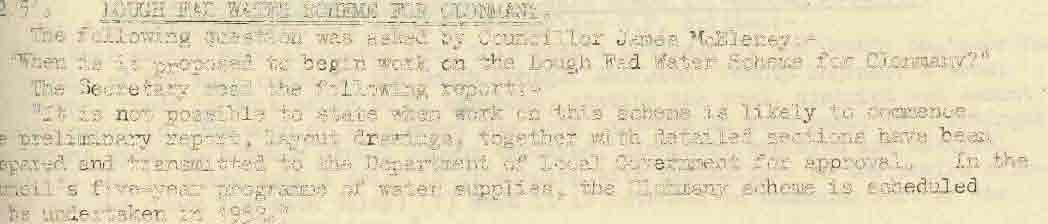 LOUGH FAD WATER SCHEME FOR CLONMANY.
The following question was asked by Councillor James McEleney:-
"When is it proposed to begin work on the Lough Fad Water Scheme for Clonmany?"
The Secretary read the following report:-
"It is not possible to state when work on this scheme is likely to commence.
e preliminary report, layout drawings, together with detailed sections have been
epared and transmitted to the Department of Local Government for approval. In the
uncil's five-year programme of water supplies, the Clonmany scheme is scheduled
be undertaken in